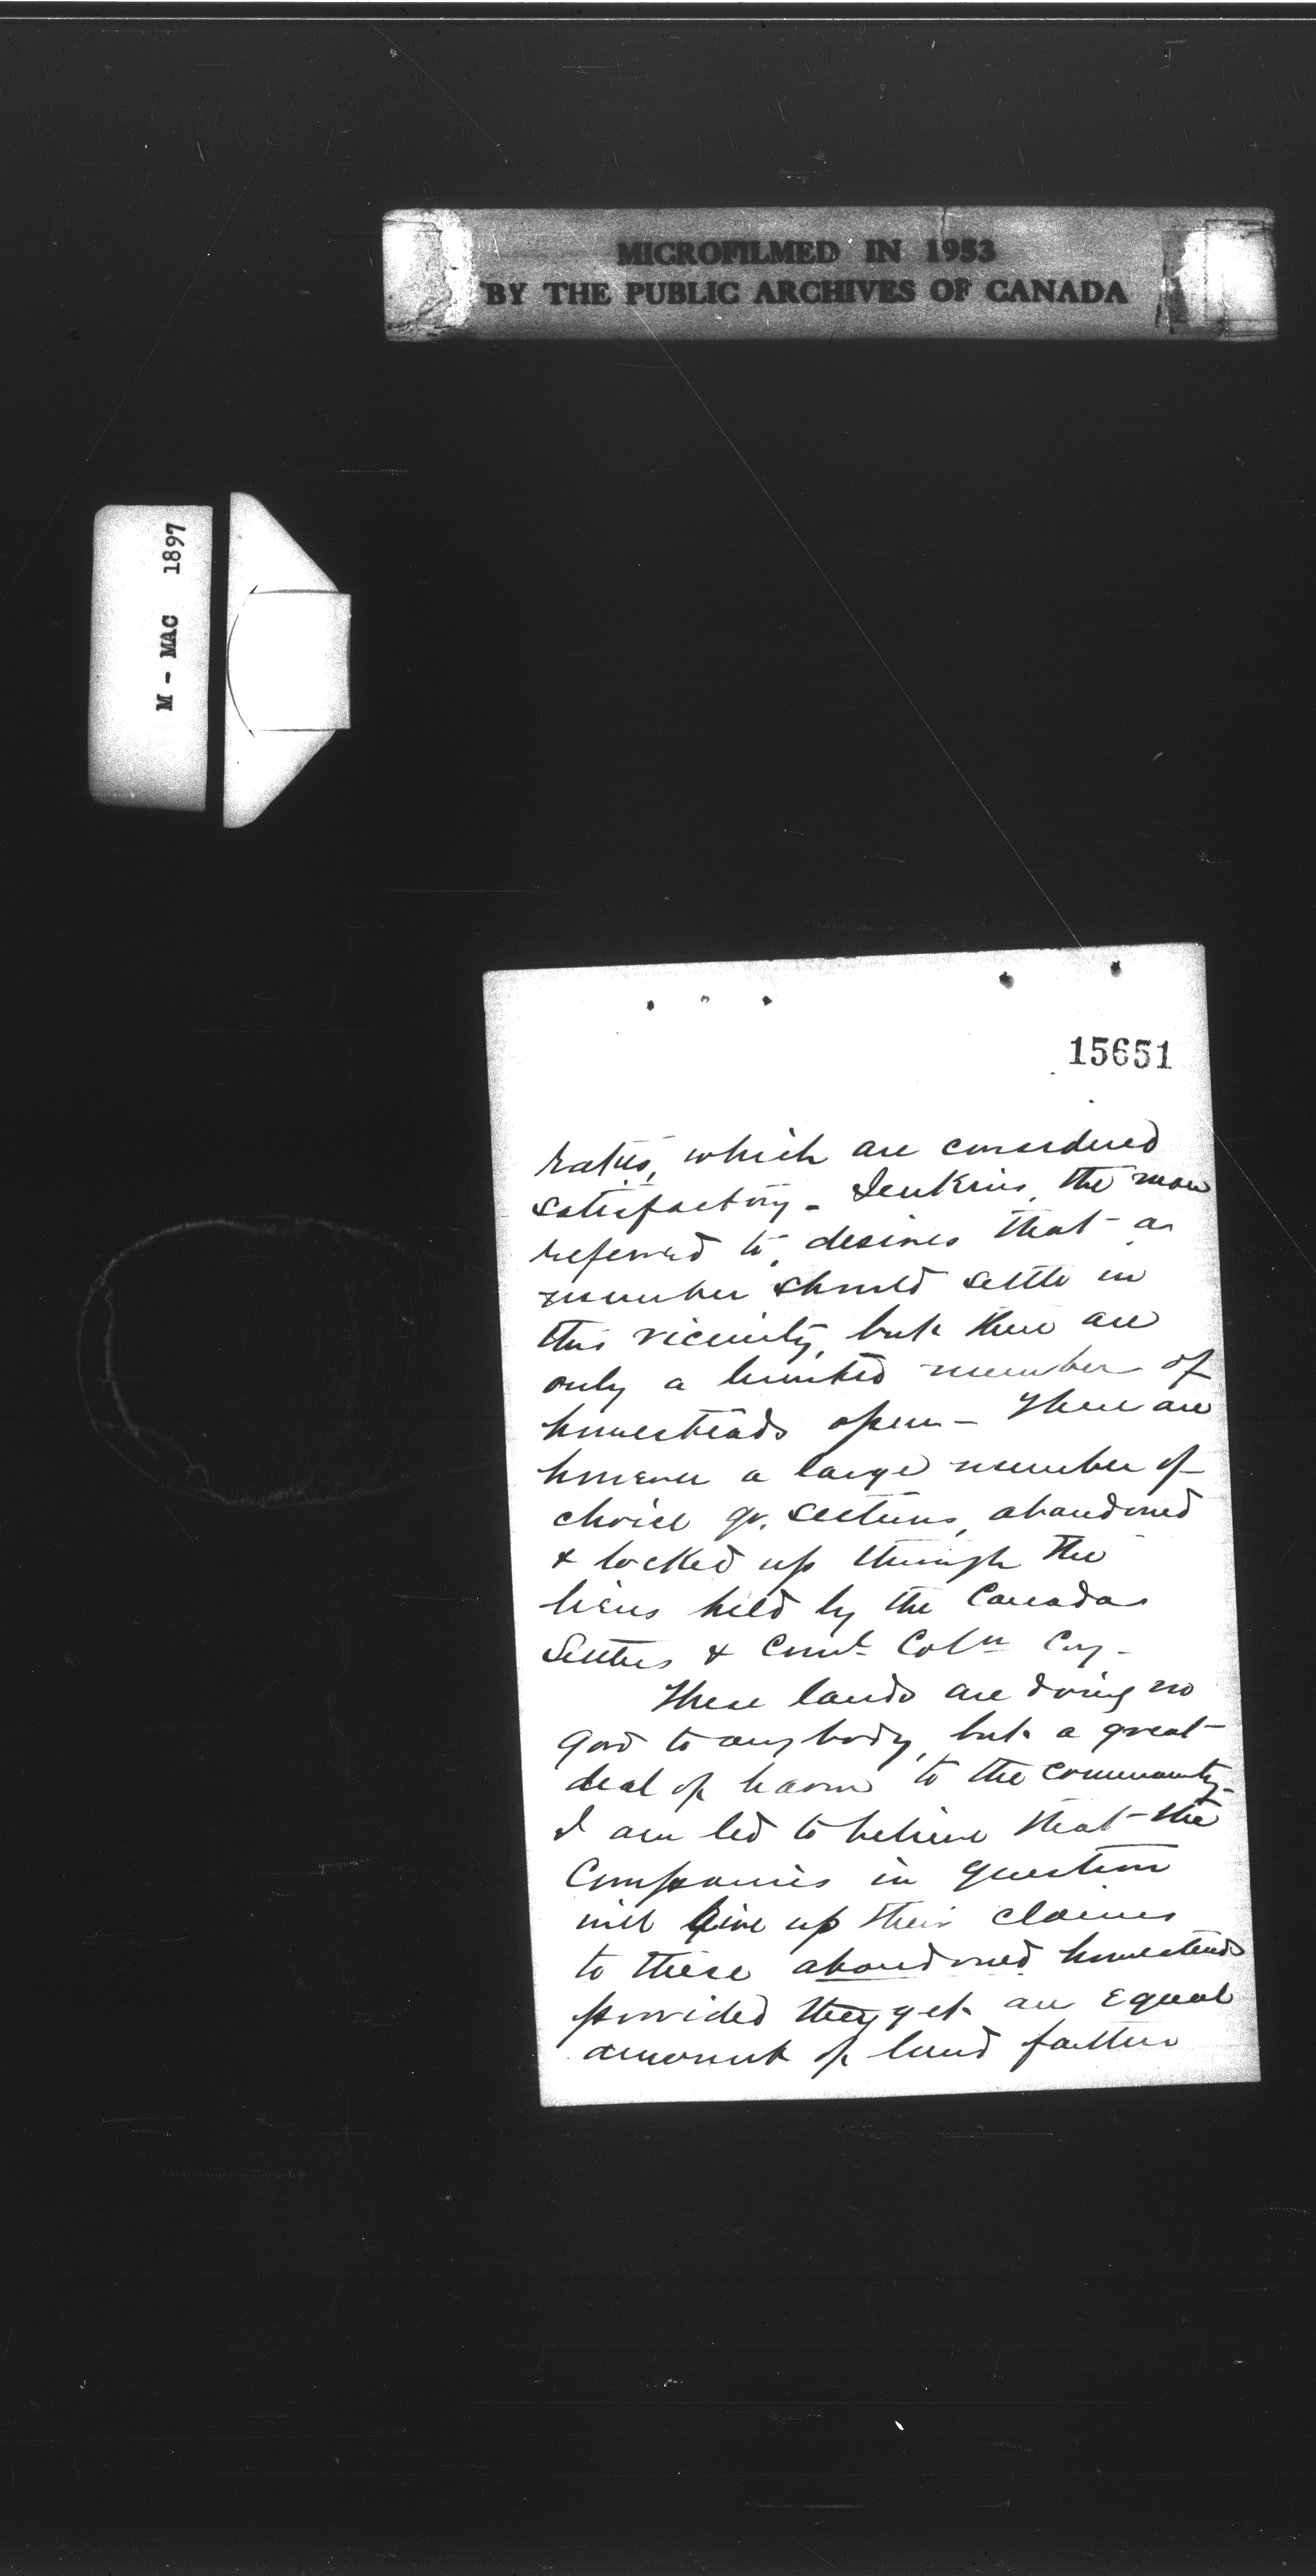 MICROFILMED IN 1953
BY THE PUBLIC ARCHIVES OF CANADA
M - MAC 1897
15651
rates, which are considered
satisfactory - Jenkins, the man
referred to, desires that a
number should settle in
this vicinity, but there are
only a limited number of
homesteads open - There are
however a large number of
choice qr. sections, abandoned
& locked up through the
liens held by the Canada
Settlers & Coml. Coln Coy -
These lands are doing no
good to any body, but a great
deal of harm to the community -
I am led to believe that the
Companies in question
will give up their claims
to these abandoned homesteads
provided they get an equal
amount of land further